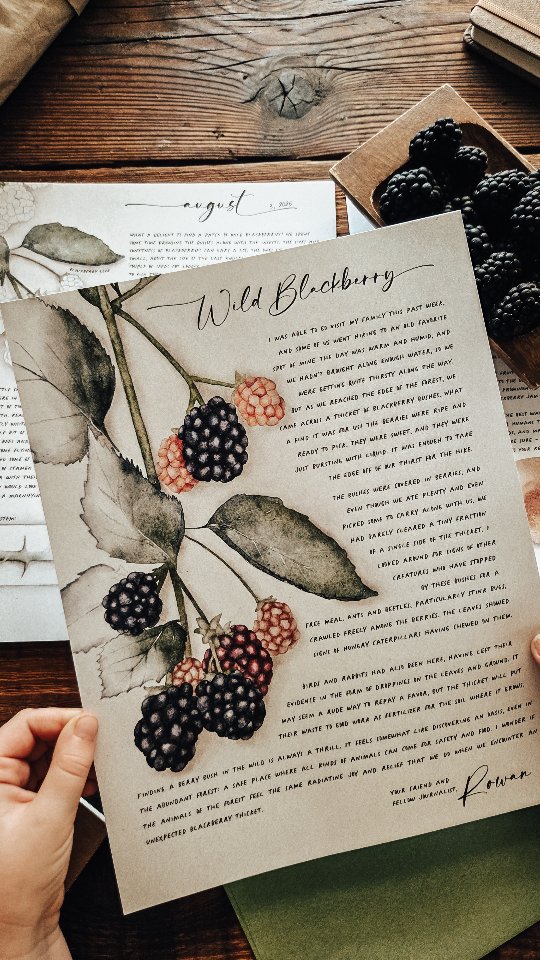 august 2, 2025
WHAT A DELIGHT TO FIND A PATCH OF WILD BLACKBERRIES! WE SPENT
SOME TIME BRINGING THE BUSHES ALONG WITH THE
BLACKBERRY LEAF
Wild Blackberry
I WAS ABLE TO GO VISIT MY FAMILY THIS PAST WEEK,
AND SOME OF US WENT HIKING TO AN OLD FAVORITE
SPOT OF MINE. THE DAY WAS WARM AND HUMID, AND
WE HADN'T BROUGHT ALONG ENOUGH WATER, SO WE
WERE GETTING QUITE THIRSTY ALONG THE WAY.
BUT AS WE REACHED THE EDGE OF THE FOREST, WE
CAME ACROSS A THICKET OF BLACKBERRY BUSHES. WHAT
A FIND IT WAS FOR US! THE BERRIES WERE RIPE AND
READY TO PICK. THEY WERE SWEET, AND THEY WERE
JUST BURSTING WITH LIQUID. IT WAS ENOUGH TO TAKE
THE EDGE OFF OF OUR THIRST FOR THE HIKE.
THE BUSHES WERE COVERED IN BERRIES, AND
EVEN THOUGH WE ATE PLENTY AND EVEN
PICKED SOME TO CARRY ALONG WITH US, WE
HAD BARELY CLEARED A TINY FRACTION
OF A SINGLE SIDE OF THE THICKET. I
LOOKED AROUND FOR SIGNS OF OTHER
CREATURES WHO HAVE STOPPED
BY THESE BUSHES FOR A
FREE MEAL. ANTS AND BEETLES, PARTICULARLY STINK BUGS,
CRAWLED FREELY AMONG THE BERRIES. THE LEAVES SHOWED
SIGNS OF HUNGRY CATERPILLARS HAVING CHEWED ON THEM.
BIRDS AND RABBITS HAD ALSO BEEN HERE, HAVING LEFT THEIR
EVIDENCE IN THE FORM OF DROPPINGS ON THE LEAVES AND GROUND. IT
MAY SEEM A RUDE WAY TO REPAY A FAVOR, BUT THE THICKET WILL PUT
THEIR WASTE TO GOOD WORK AS FERTILIZER FOR THE SOIL WHERE IT GROWS.
FINDING A BERRY BUSH IN THE WILD IS ALWAYS A THRILL. IT FEELS SOMEWHAT LIKE DISCOVERING AN OASIS, EVEN IN
THE ABUNDANT FOREST: A SAFE PLACE WHERE ALL KINDS OF ANIMALS CAN COME FOR SAFETY AND FOOD. I WONDER IF
THE ANIMALS OF THE FOREST FEEL THE SAME RADIATING JOY AND RELIEF THAT WE DO WHEN WE ENCOUNTER AN
UNEXPECTED BLACKBERRY THICKET.
YOUR FRIEND AND
FELLOW JOURNALIST,
Rowan